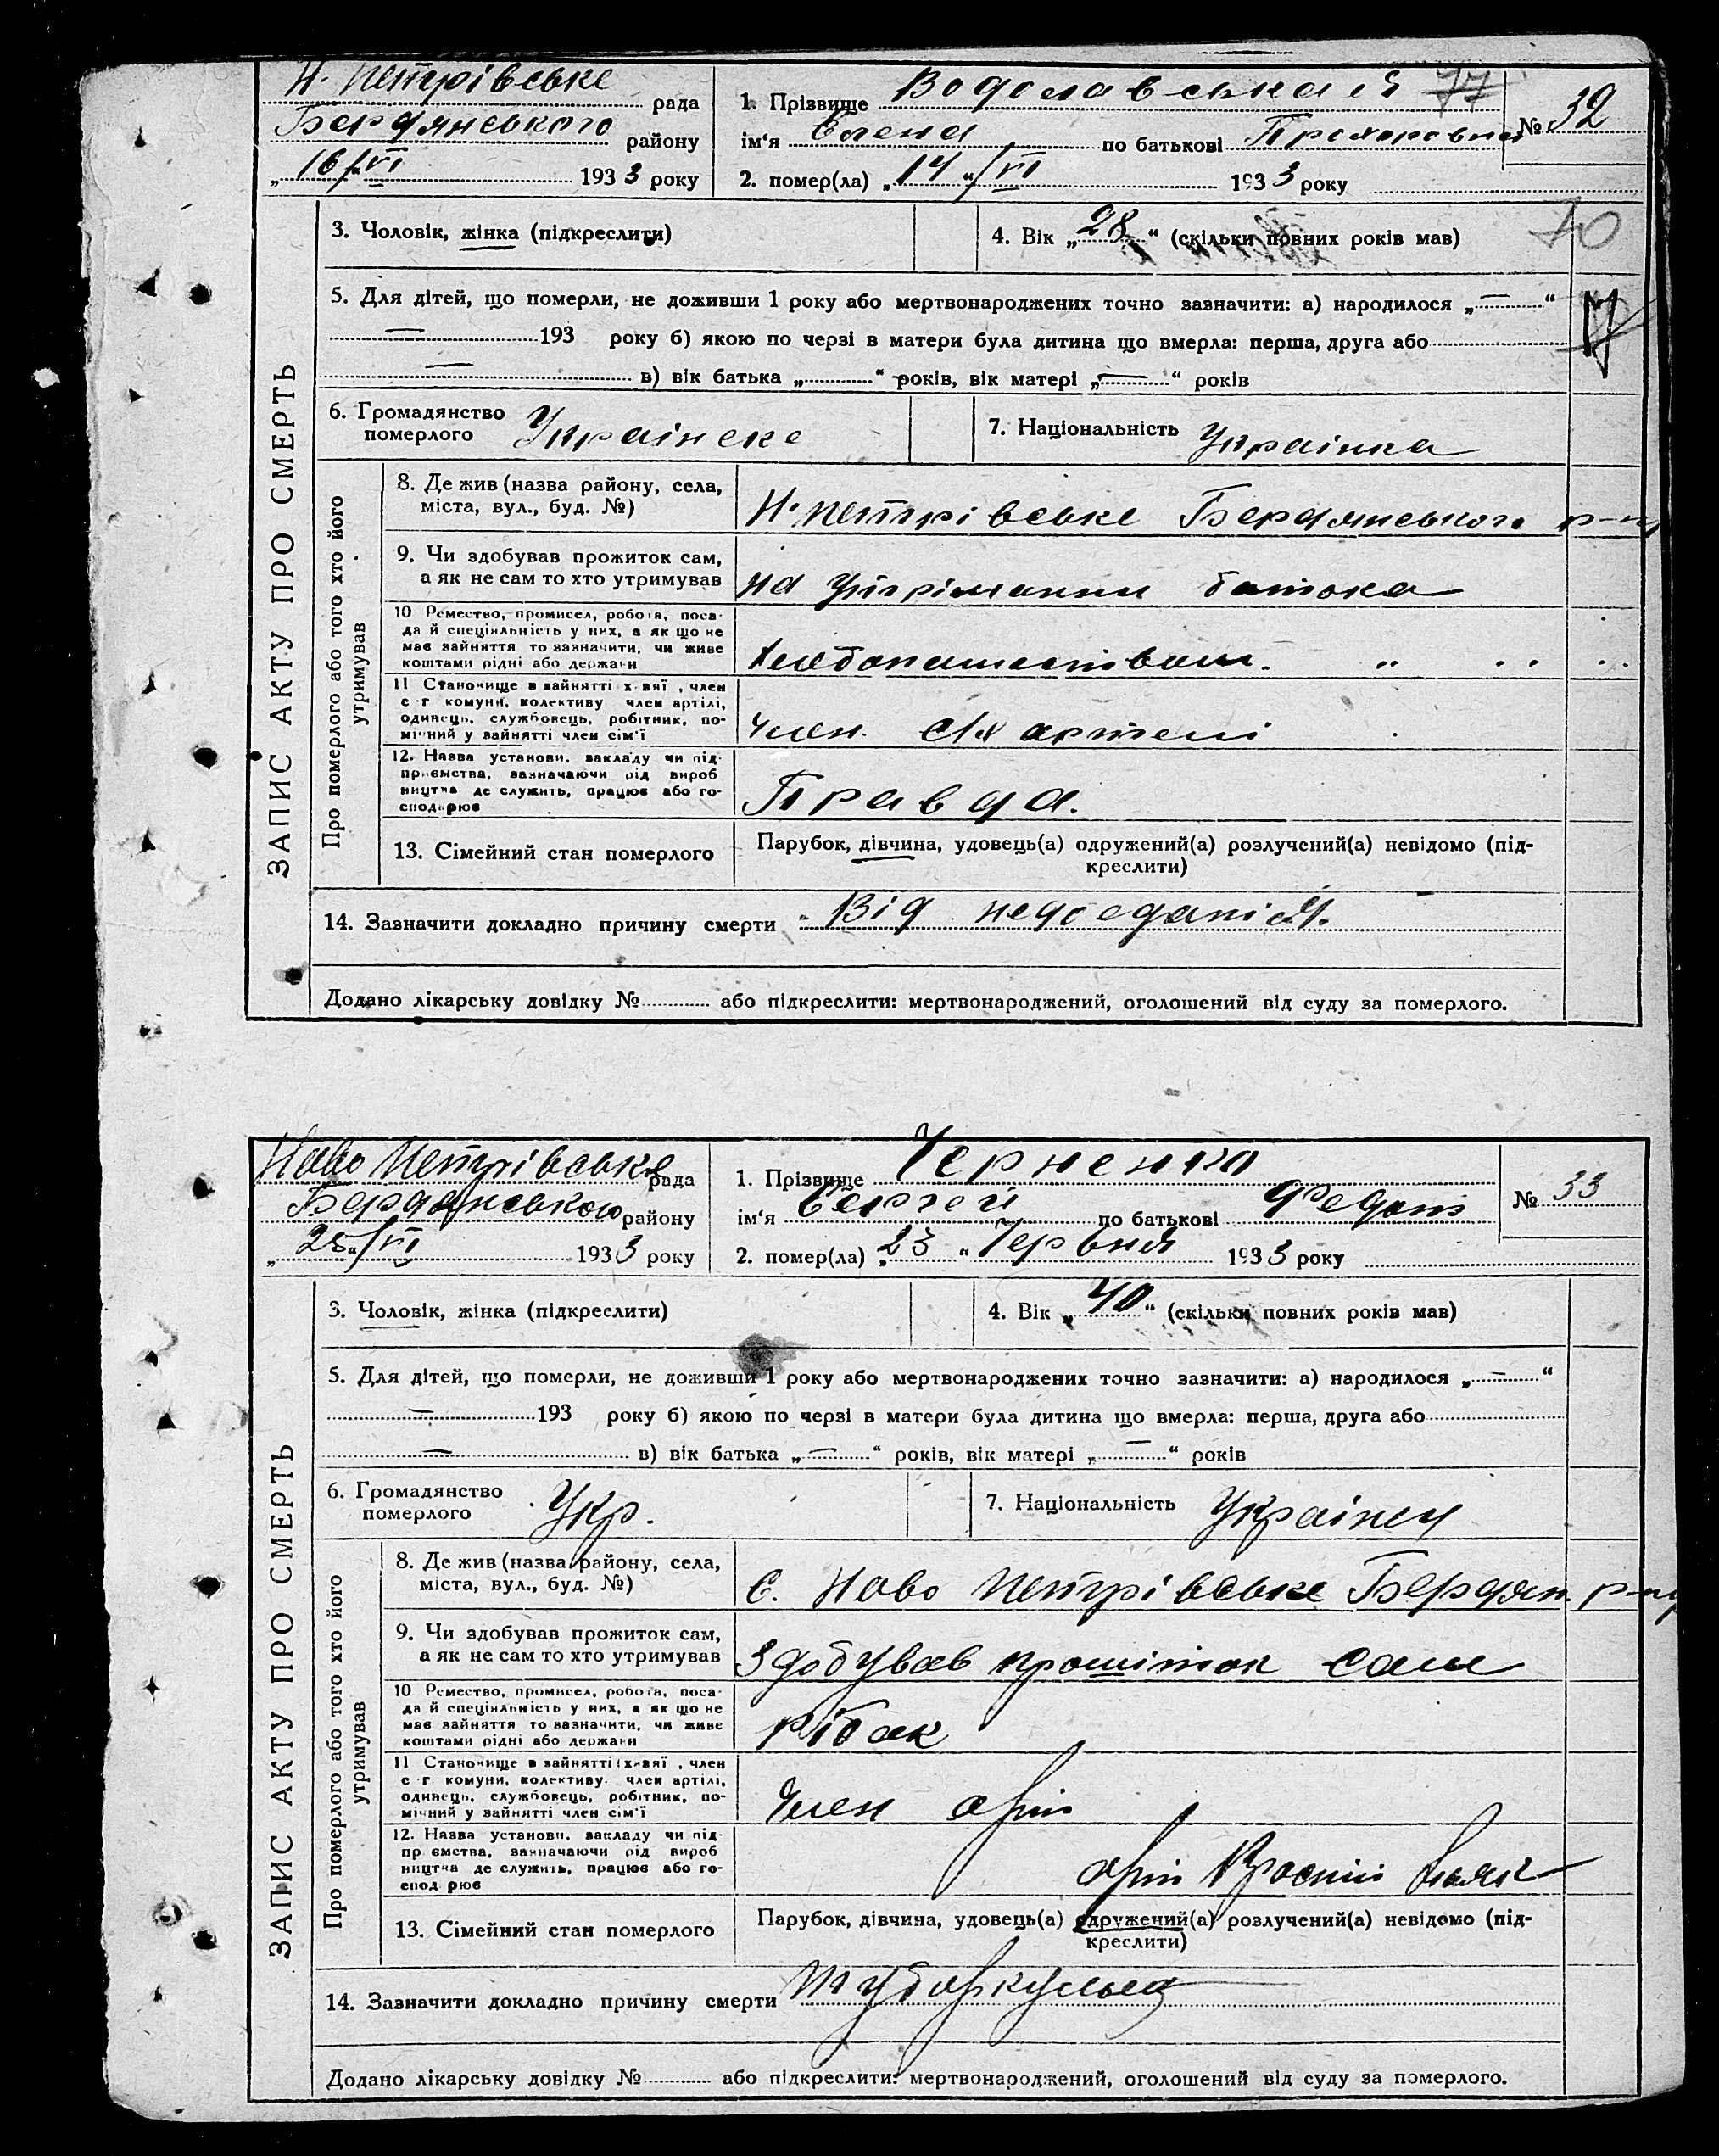 Н. Петрівське рада
Бердянського району
„ 16/VI 1933 року
1. Прізвище Водолавська
ім‘я Елена по батькові Прохоровна
2. помер(ла) „ 14 “/VI 1933 року
№ 32
77
3. Чоловік, жінка (підкреслити)
4. Вік „ 28 “ (скільки повних років мав)
70
5. Для дітей, що померли, не доживши 1 року або мертвонароджених точно зазначити: а) народилося „ — “
— 193 року б) якою по черзі в матери була дитина що вмерла: перша, друга або
— в) вік батька „ “ років, вік матері „ — “ років
6. Громадянство
померлого Украінске
7. Національність Украінка
ЗАПИС АКТУ ПРО СМЕРТЬ
Про померлого або того хто його
утримував
8. Де жив (назва району, села,
міста, вул., буд. №)
Н. Петрівське Бердянського р-ну
9. Чи здобував прожиток сам,
а як не сам то хто утримував
на утріманни батька
10 Ремество, промисел, робота, поса-
да й спеціяльність у них, а як що не
має зайняття то зазначити, чи живе
коштами рідні або держави
11 Становище в зайнятті х-вяї , член
с г комуни, колективу член артілі,
одинець, службовець, робітник, по-
мічний у зайнятті член сім'ї
член. С/х артелі
12. Назва установи, закладу чи під-
приємства, зазначаючи рід вироб
ництва де служить, працює або го-
сподарює
Правда.
13. Сімейний стан померлого
Парубок, дівчина, удовець(а) одружений(а) розлучений(а) невідомо (під-
креслити)
14. Зазначити докладно причину смерти Від недоеданія.
Додано лікарську довідку № або підкреслити: мертвонароджений, оголошений від суду за померлого.
Ново Петрівське рада
Бердянського району
„ 25/VI 1933 року
1. Прізвище Черненко
ім‘я Сергей по батькові Федот
2. помер(ла) „ 23 “ Червня 1933 року
№ 33
3. Чоловік, жінка (підкреслити)
4. Вік „ 40 “ (скільки повних років мав)
5. Для дітей, що померли, не доживши 1 року або мертвонароджених точно зазначити: а) народилося „ — “
— 193 року б) якою по черзі в матери була дитина що вмерла: перша, друга або
— в) вік батька „ — “ років, вік матері „ — “ років
6. Громадянство
померлого Укр.
7. Національність Украінец
ЗАПИС АКТУ ПРО СМЕРТЬ
Про померлого або того хто його
утримував
8. Де жив (назва району, села,
міста, вул., буд. №)
С. Ново Петрівське Бердян. р-ну
9. Чи здобував прожиток сам,
а як не сам то хто утримував
Здобував прошіток сам
10 Ремество, промисел, робота, поса-
да й спеціяльність у них, а як що не
має зайняття то зазначити, чи живе
коштами рідні або держави
рібак
11 Становище в зайнятті х-вяї , член
с г комуни, колективу член артілі,
одинець, службовець, робітник, по-
мічний у зайнятті член сім'ї
член арт
12. Назва установи, закладу чи під-
приємства, зазначаючи рід вироб
ництва де служить, працює або го-
сподарює
арт
13. Сімейний стан померлого
Парубок, дівчина, удовець(а) одружений(а) розлучений(а) невідомо (під-
креслити)
14. Зазначити докладно причину смерти
Додано лікарську довідку № або підкреслити: мертвонароджений, оголошений від суду за померлого.